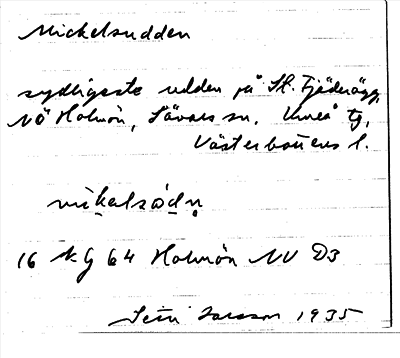 Mickelsudden
sydligaste udden på St. Fjäderägg,
NÖ Holmön, Sävars sn. Umeå tg,
Västerbottens l.
mikalsødn
16 NG 64 Holmön NV D3
Larsson 1935